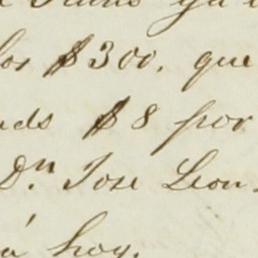 los $300. que
uds $8 por
D.n Jose Leon
á hoy.